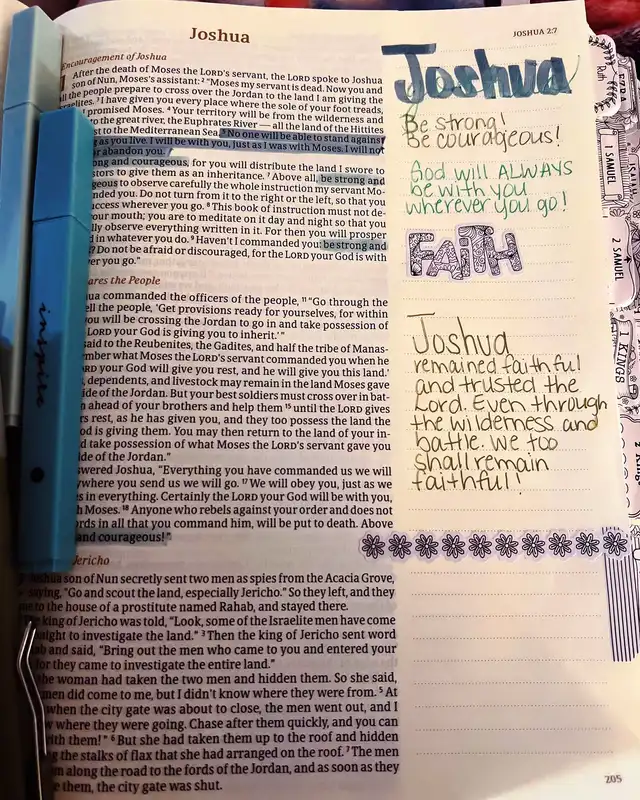 Joshua
JOSHUA 2:7
Encouragement of Joshua
After the death of Moses the LORD's servant, the LORD spoke to Joshua
son of Nun, Moses's assistant: 2 "Moses my servant is dead. Now you and
all the people prepare to cross over the Jordan to the land I am giving the
3 I have given you every place where the sole of your foot treads,
I promised Moses. 4 Your territory will be from the wilderness and
to the great river, the Euphrates River — all the land of the Hittites
to the Mediterranean Sea. 5 No one will be able to stand against
as you live. I will be with you, just as I was with Moses. I will not
or abandon you.
and courageous, for you will distribute the land I swore to
to give them as an inheritance. 7 Above all, be strong and
to observe carefully the whole instruction my servant Mo-
you. Do not turn from it to the right or the left, so that you
wherever you go. 8 This book of instruction must not de-
your mouth; you are to meditate on it day and night so that you
observe everything written in it. For then you will prosper
in whatever you do. 9 Haven't I commanded you: be strong and
Do not be afraid or discouraged, for the LORD your God is with
you go."
the People
commanded the officers of the people, 11 "Go through the
the people, 'Get provisions ready for yourselves, for within
you will be crossing the Jordan to go in and take possession of
LORD your God is giving you to inherit.'"
said to the Reubenites, the Gadites, and half the tribe of Manas-
what Moses the LORD's servant commanded you when he
your God will give you rest, and he will give you this land.'
dependents, and livestock may remain in the land Moses gave
of the Jordan. But your best soldiers must cross over in bat-
ahead of your brothers and help them 15 until the LORD gives
rest, as he has given you, and they too possess the land the
God is giving them. You may then return to the land of your in-
take possession of what Moses the LORD's servant gave you
of the Jordan."
Joshua, "Everything you have commanded us we will
you send us we will go. 17 We will obey you, just as we
in everything. Certainly the LORD your God will be with you,
Moses. 18 Anyone who rebels against your order and does not
in all that you command him, will be put to death. Above
and courageous!"
Jericho
Joshua son of Nun secretly sent two men as spies from the Acacia Grove,
saying, "Go and scout the land, especially Jericho." So they left, and they
to the house of a prostitute named Rahab, and stayed there.
king of Jericho was told, "Look, some of the Israelite men have come
to investigate the land." 3 Then the king of Jericho sent word
and said, "Bring out the men who came to you and entered your
for they came to investigate the entire land."
the woman had taken the two men and hidden them. So she said,
men did come to me, but I didn't know where they were from. 5 At
when the city gate was about to close, the men went out, and I
where they were going. Chase after them quickly, and you can
with them!" 6 But she had taken them up to the roof and hidden
the stalks of flax that she had arranged on the roof. 7 The men
along the road to the fords of the Jordan, and as soon as they
them, the city gate was shut.
Joshua
Be strong!
Be courageous!
God will ALWAYS
be with you
wherever you go!
FAITH
Joshua
remained faithful
and trusted the
Lord. Even through
the wilderness and
battle. We too
shall remain
faithful!
205
inspire
Ruth
EZRA
1 SAMUEL
2 SAMUEL
1 KINGS